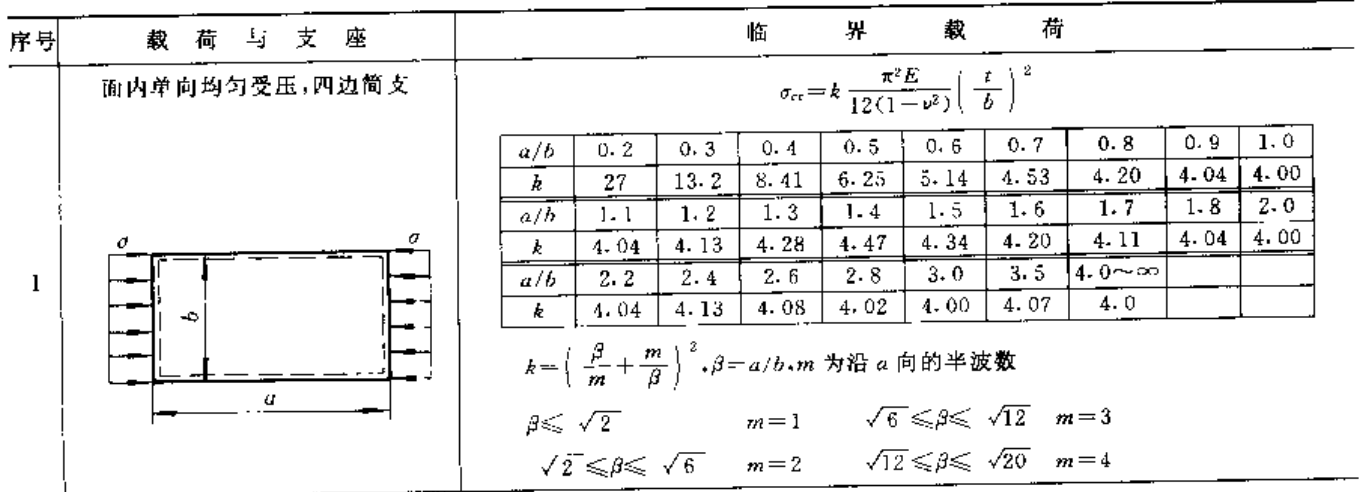 序号 载荷与支座 临界载荷
1
面内单向均匀受压,四边简支
σ b σ
a
σcr=k π²E/12(1-ν²) (t/b)²
a/b 0.2 0.3 0.4 0.5 0.6 0.7 0.8 0.9 1.0
k 27 13.2 8.41 6.25 5.14 4.53 4.20 4.04 4.00
a/b 1.1 1.2 1.3 1.4 1.5 1.6 1.7 1.8 2.0
k 4.04 4.13 4.28 4.47 4.34 4.20 4.11 4.04 4.00
a/b 2.2 2.4 2.6 2.8 3.0 3.5 4.0~∞
k 4.04 4.13 4.08 4.02 4.00 4.07 4.0
k=(β/m+m/β)²,β=a/b,m 为沿 a 向的半波数
β≤√2 m=1 √6≤β≤√12 m=3
√2≤β≤√6 m=2 √12≤β≤√20 m=4